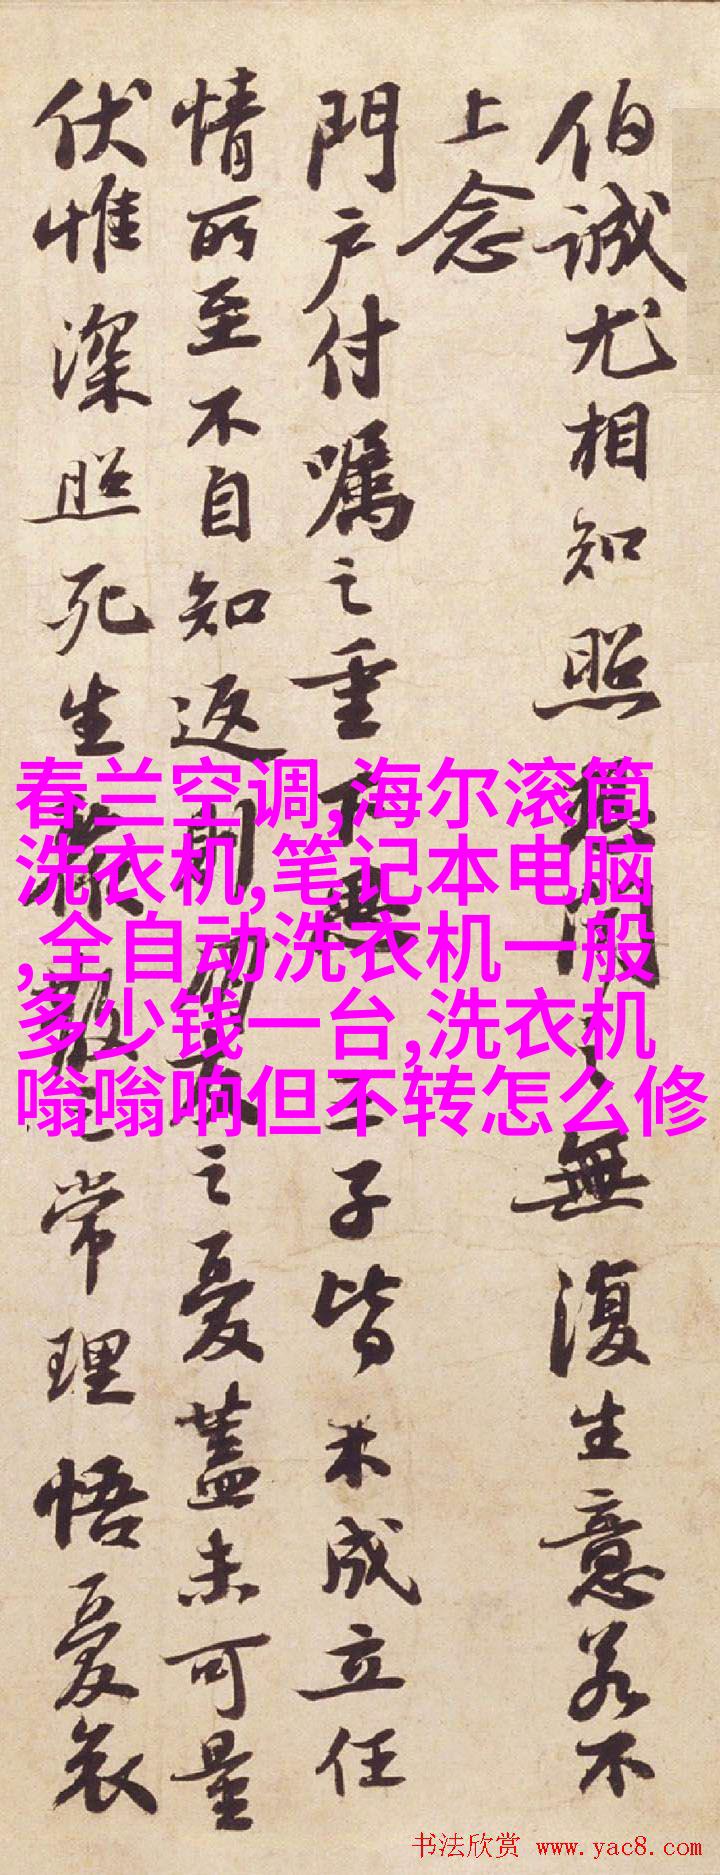 伯誠尤相知照想聞之無復生意若不
上念
門户付囑之重下三子皆未成立任
情所至不自知返則朋友之憂蓋未可量
伏惟深照死生聚散之常理悟憂哀
春兰空调,海尔滚筒
洗衣机,笔记本电脑
,全自动洗衣机一般
多少钱一台,洗衣机
嗡嗡响但不转怎么修
书法欣赏 www.yac8.com